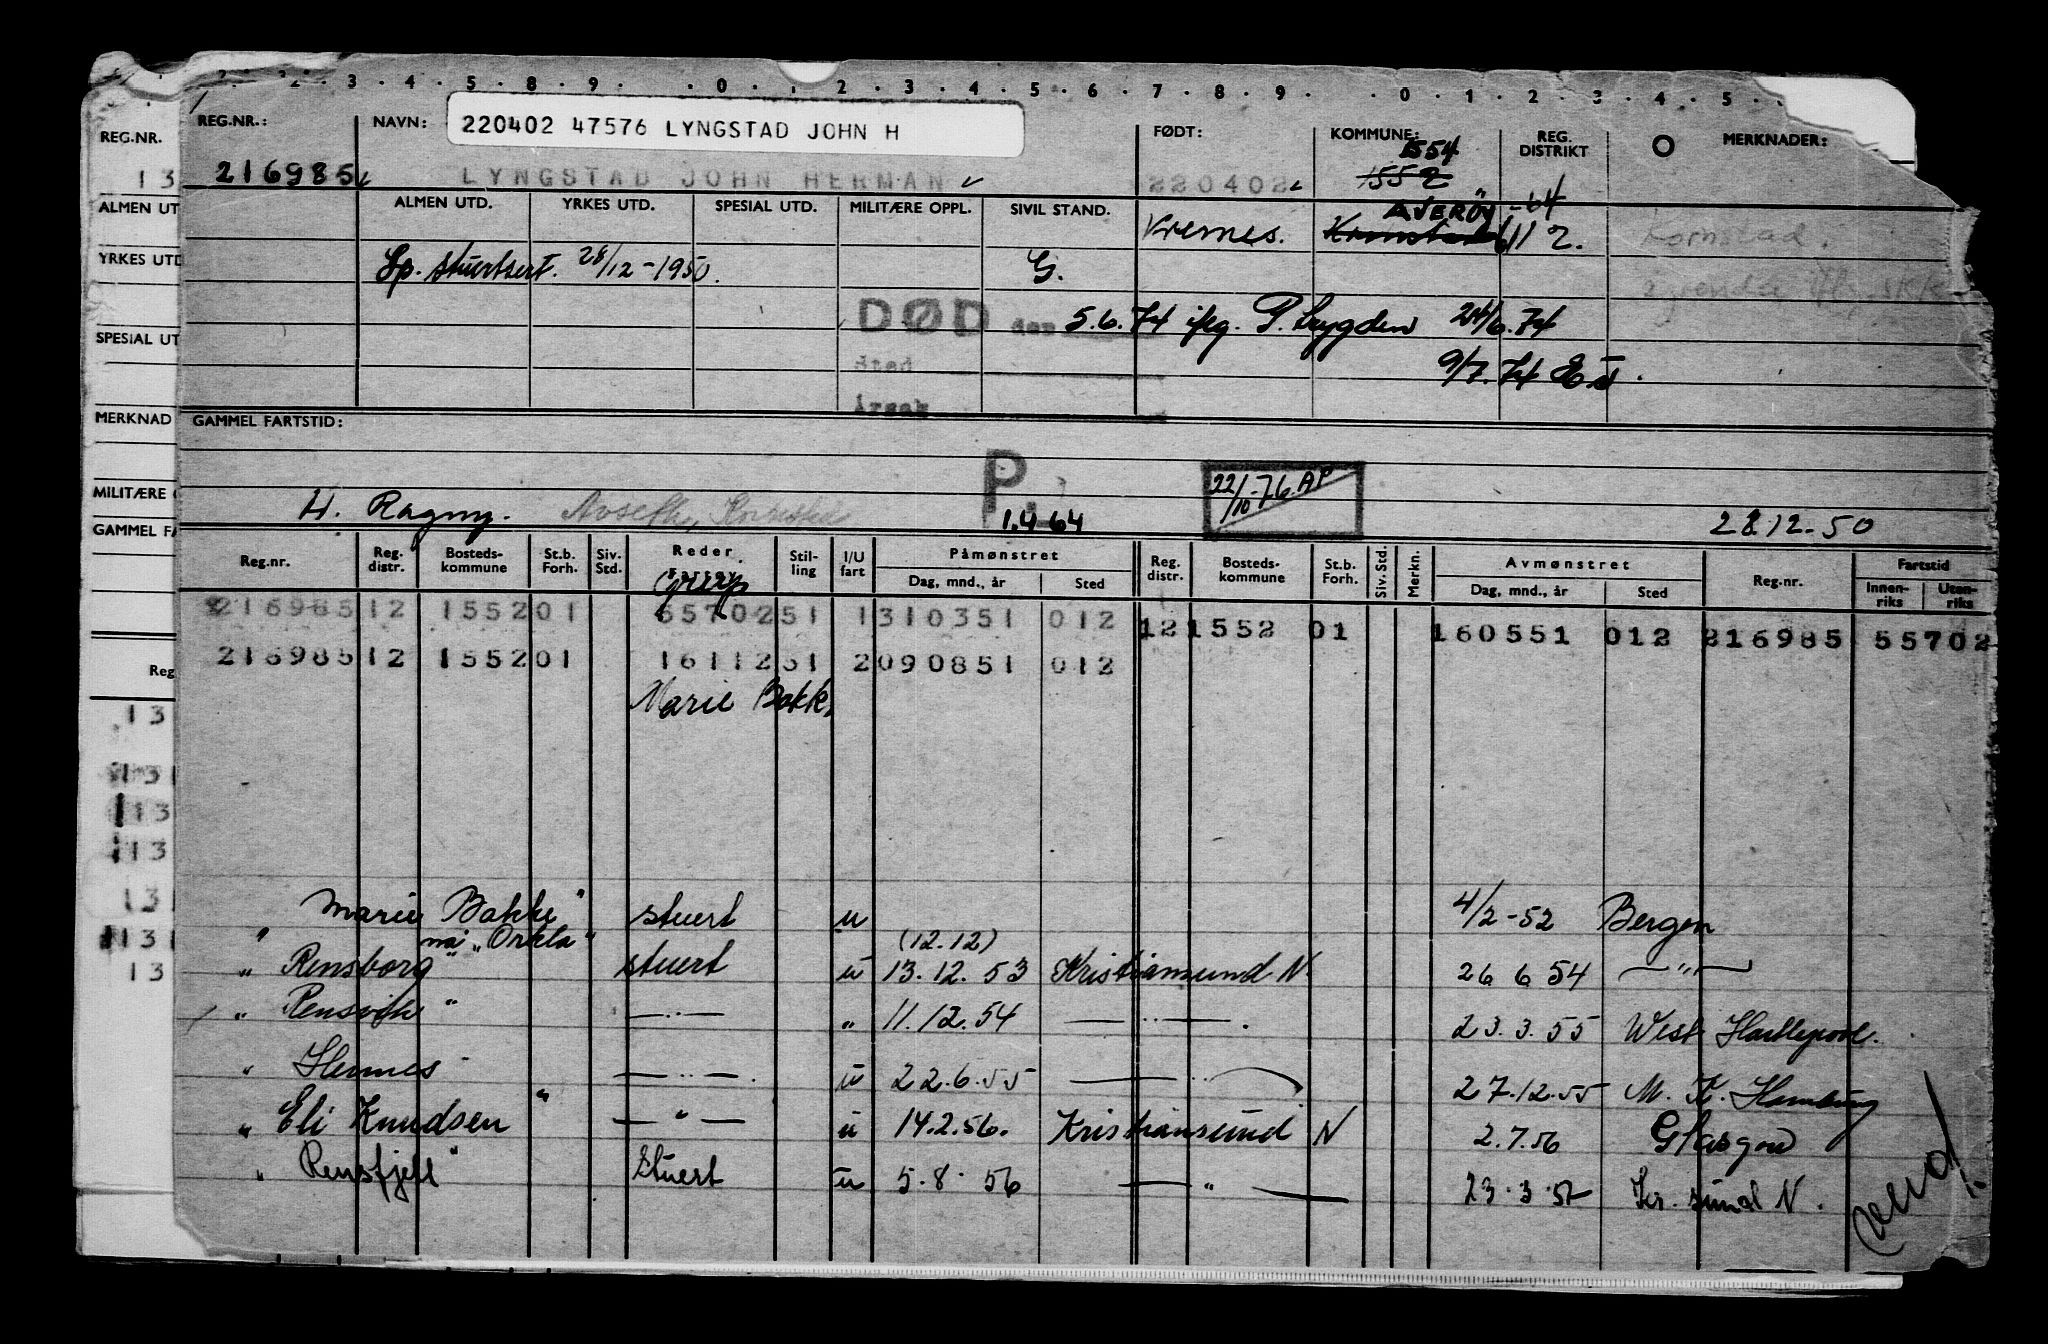 REG.NR.: NAVN: 220402 47576 LYNGSTAD JOHN H FØDT: KOMMUNE: REG. DISTRIKT MERKNADER:
1554
216985 LYNGSTAD JOHN HERMAN 220402 1552
ALMEN UTD. YRKES UTD. SPESIAL UTD. MILITÆRE OPPL. SIVIL STAND. AVERØY -64
Kornstad 12. Kornstad.
Sp. stuertsert. 28/12-1950. G.
DØD den 5.6.74 P. trygden 24/6.74
Sted 9/7.74
Årsak
GAMMEL FARTSTID:
P. 22/10-76. AP
1.4 64
28 12-50
Reg.nr. Reg. distr. Bosteds-kommune St.b. Forh. Siv. Std. Reder Stil-ling I/U fart Påmønstret Dag, mnd., år Sted Reg. distr. Bosteds-kommune St.b. Forh. Siv. Std. Merkn. Avmønstret Dag, mnd., år Sted Reg.nr. Fartstid Innen-riks Uten-riks
Grip
216985 12 1552 01 55702 51 1 310351 012 12 1552 01 160551 012 216985 55702
216985 12 1552 01 16112 51 2 090851 012
Marie Bakk.
" Marie Bakke" stuert u 4/2-52 Bergen
nå "Orkla" (12.12)
" Rensborg" stuert u 13.12.53 Kristiansund N. 26 6 54 — " —
" Rensvik " — " — " 11.12.54 — " — . 23.3.55 West Hartlepool.
" Hermes — " — . u 22.6.55 — " — 27.12.55 M. K. Hamburg
" Eli Knudsen " — " — u 14.2.56. Kristiansund N 2.7.56 Glasgow
" Rensfjell" Stuert u 5.8.56 — " — 23.3.57 Kr. sund N.
vend
REG.NR.
13
ALMEN UT
YRKES UTD
SPESIAL UT
MERKNAD
MILITÆRE
GAMMEL FA
Reg
13
131
13
13
131
131
13